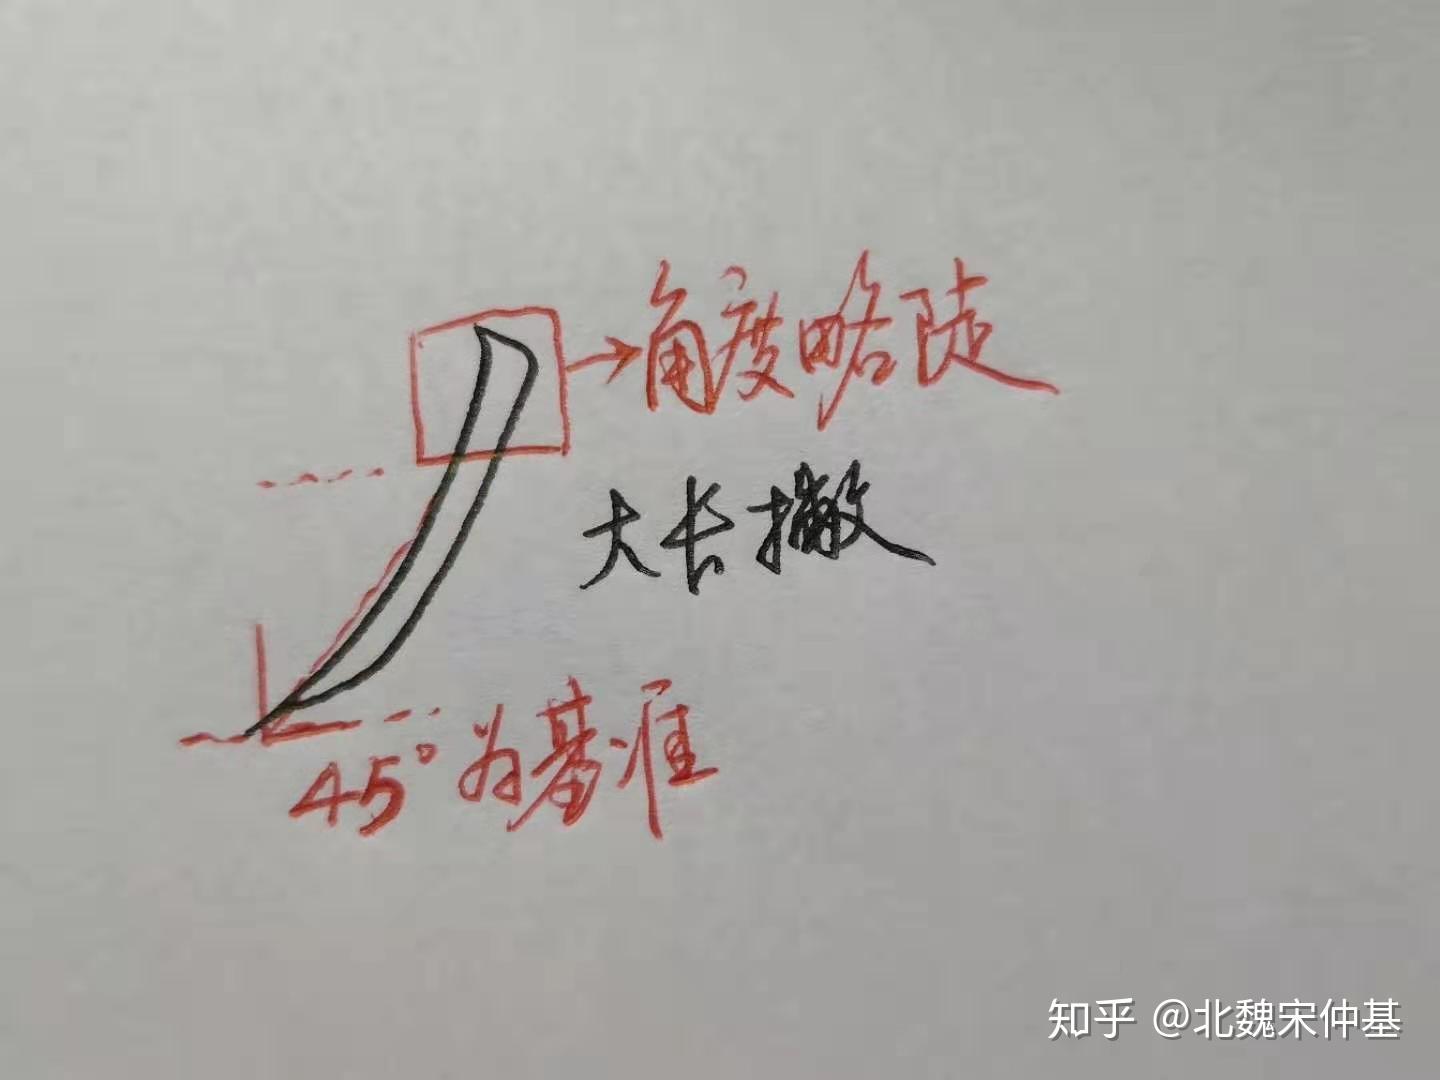 角度略陡
大长撇
45°为基准
知乎 @北魏宋仲基